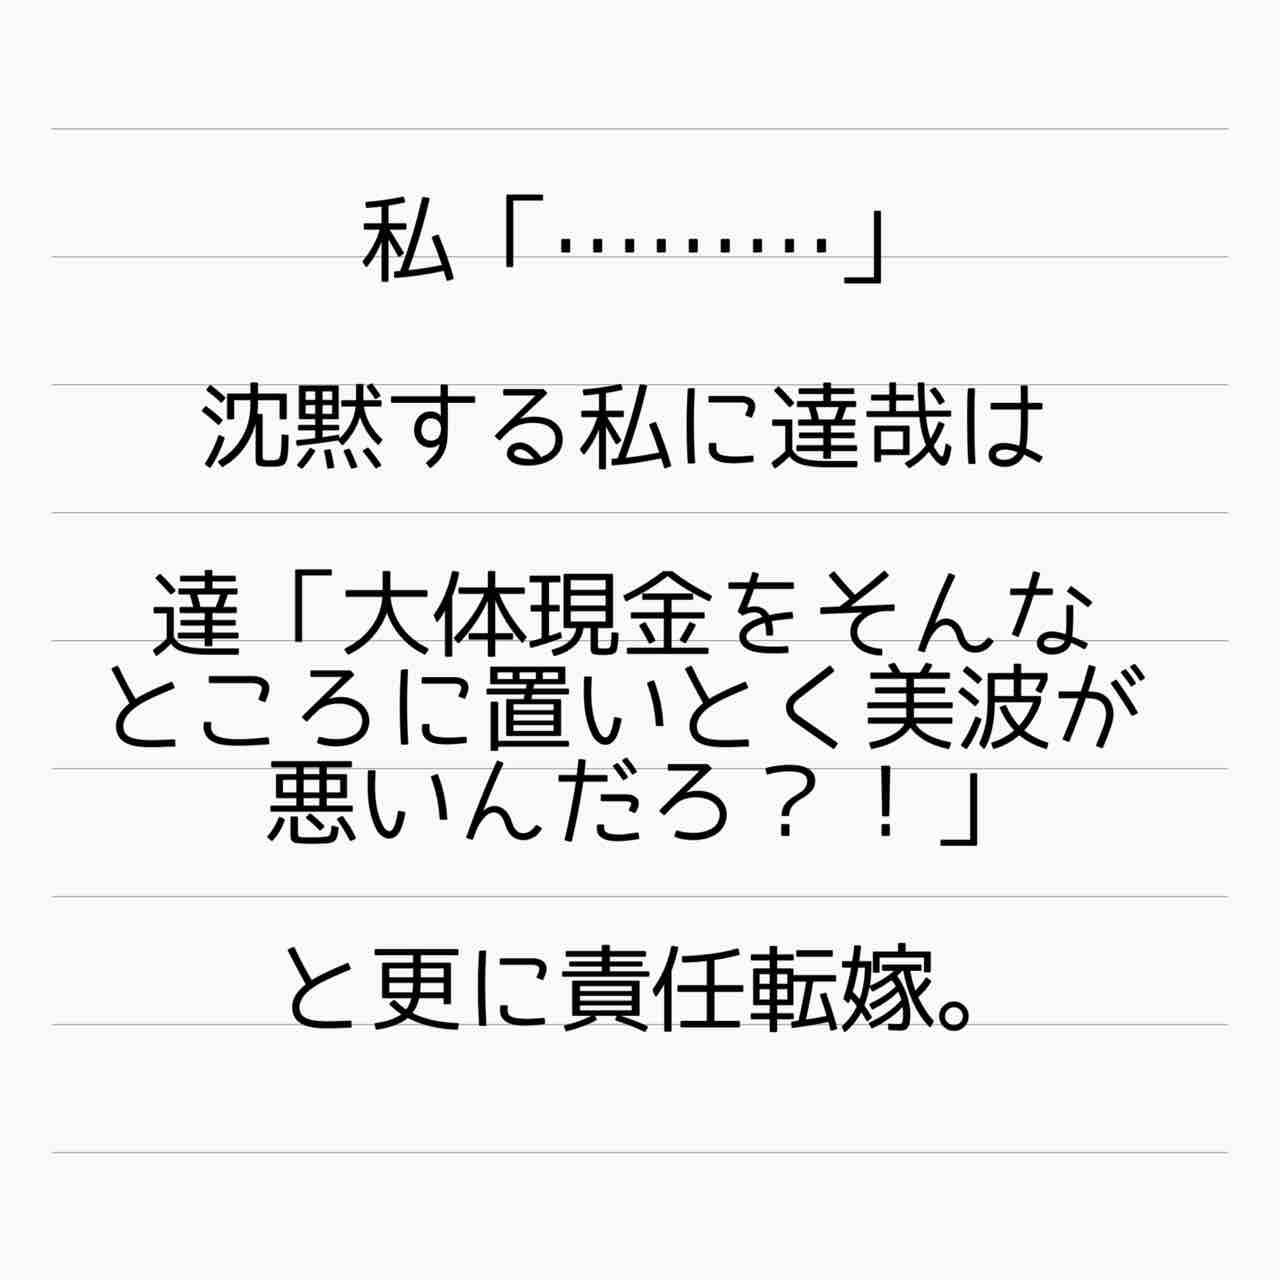 私「………」
沈黙する私に達哉は
達「大体現金をそんな
ところに置いとく美波が
悪いんだろ？！」
と更に責任転嫁。